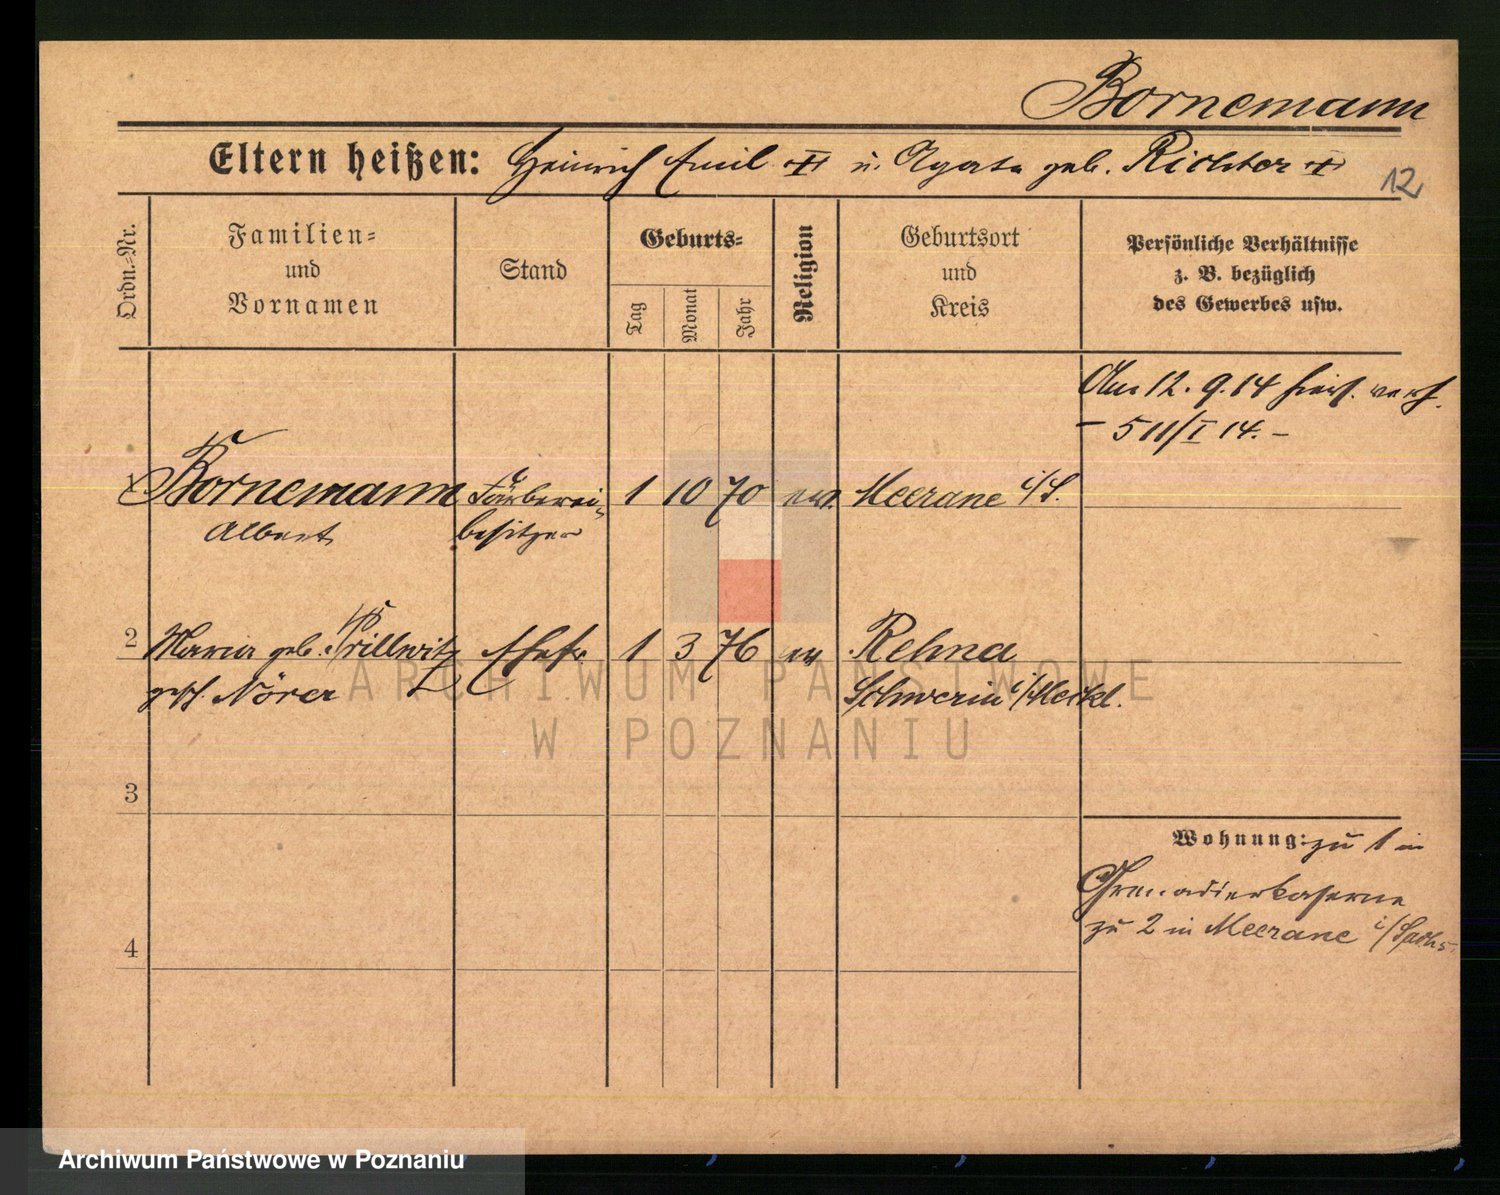 Bornemann
Eltern heißen: Heinrich Emil u. Agata geb. Richter
12
Ordn.=Nr.
Familien=
und
Vornamen
Stand
Geburts=
Tag
Monat
Jahr
Religion
Geburtsort
und
Kreis
Persönliche Verhältnisse
z. B. bezüglich
des Gewerbes usw.
Am 12. 9. 14 hier verh.
- 511/I 14. -
1 Bornemann Färberei- 1 10 70 ev. Meerane i/S.
Albert besitzer
2 Maria geb. Prillwitz Ehefr. 1 3 76 ev Rehna
gesch. Nörer Schwerin i/Meckl.
3
4
Wohnung: zu 1 in
Grenadierkaserne
zu 2 in Meerane i/Sachs.
ARCHIWUM PAŃSTWOWE
W POZNANIU
Archiwum Państwowe w Poznaniu